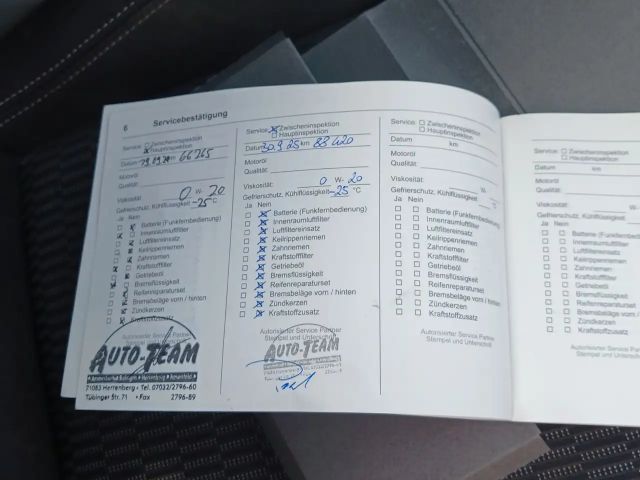 6 Servicebestätigung
Service: Zwischeninspektion
Hauptinspektion
Datum km 66265
Motoröl
Qualität:
Viskosität: 0 W- 20
Gefrierschutz, Kühlflüssigkeit -25 °C
Ja Nein
Batterie (Funkfernbedienung)
Innenraumluftfilter
Luftfiltereinsatz
Keilrippenriemen
Zahnriemen
Kraftstofffilter
Getriebeöl
Bremsflüssigkeit
Reifenreparaturset
Bremsbeläge vorn / hinten
Zündkerzen
Kraftstoffzusatz
Autorisierter Service Partner
AUTO-TEAM
71083 Herrenberg • Tel. 07032/2796-60
Tübinger Str. 71 • Fax 2796-89
Service: Zwischeninspektion
Hauptinspektion
Datum 30.9.25 km 83420
Motoröl
Qualität:
Viskosität: 0 W- 20
Gefrierschutz, Kühlflüssigkeit -25 °C
Ja Nein
Batterie (Funkfernbedienung)
Innenraumluftfilter
Luftfiltereinsatz
Keilrippenriemen
Zahnriemen
Kraftstofffilter
Getriebeöl
Bremsflüssigkeit
Reifenreparaturset
Bremsbeläge vorn / hinten
Zündkerzen
Kraftstoffzusatz
Autorisierter Service Partner
Stempel und Unterschrift
AUTO-TEAM
Service: Zwischeninspektion
Hauptinspektion
Datum km
Motoröl
Qualität:
Viskosität: W-
Gefrierschutz, Kühlflüssigkeit
Ja Nein
Batterie (Funkfernbedienung)
Innenraumluftfilter
Luftfiltereinsatz
Keilrippenriemen
Zahnriemen
Kraftstofffilter
Getriebeöl
Bremsflüssigkeit
Reifenreparaturset
Bremsbeläge vorn / hinten
Zündkerzen
Kraftstoffzusatz
Autorisierter Service Partner
Stempel und Unterschrift
Service: Zwischeninspektion
Hauptinspektion
Datum km
Motoröl
Qualität:
Viskosität:
Gefrierschutz, Kühlflüssigkeit
Ja Nein
Batterie
Innenraumluftfilter
Luftfiltereinsatz
Keilrippenriemen
Zahnriemen
Kraftstofffilter
Getriebeöl
Bremsflüssigkeit
Reifenreparaturset
Bremsbeläge vorn / hinten
Zündkerzen
Kraftstoffzusatz